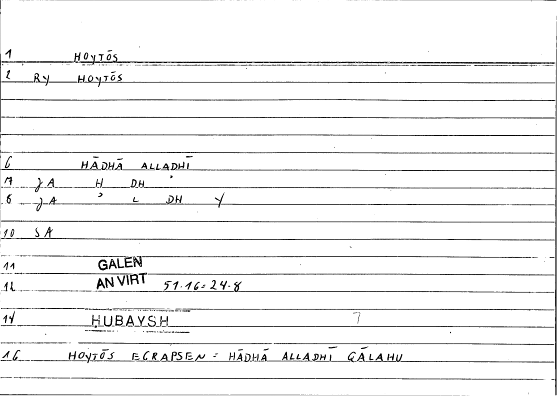 1 HOYTŌS
2 RY HOYTŌS
6 HĀDHĀ ALLADHĪ
7 JA H DH ʾ
8 JA ʾ L DH Y
10 SA
11 GALEN
12 AN VIRT 51.16=24.8
14 ḤUBAYSH 7
16 HOYTŌS EGRAPSEN = HĀDHĀ ALLADHĪ QĀLAHU